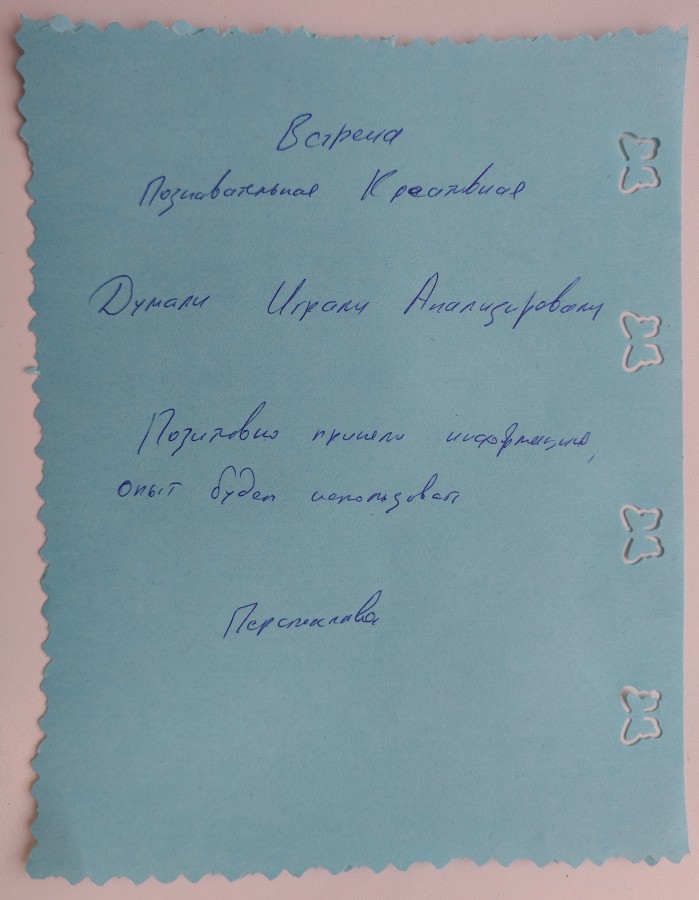 Встреча
Познавательная Креативная
Думали Играли Анализировали
Позитивно приняли информацию,
опыт будем использовать
Перспектива